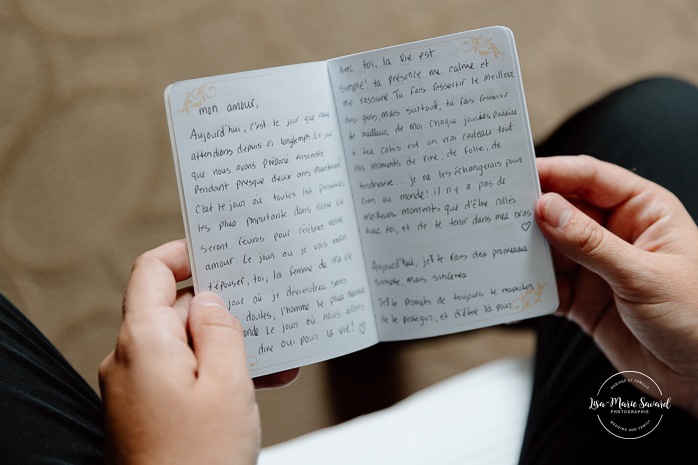 mon amour,
Aujourd'hui, c'est le jour que nous
attendions depuis si longtemps. Le jour
que nous avons préparé ensemble
pendant presque deux ans maintenant
C'est le jour ou toutes les personnes
les plus importante dans notre vie
seront réunis pour célébrer notre
amour. Le jour ou je vais enfin
t'épouser, toi, la femme de ma vie
jour où je deviendrai sans
doutes, l'homme le plus
monde. Le jour où nous allons
dire oui pour la vie! ♡
Avec toi, la vie est
simple! ta présence me calme et
me rassure. Tu fais ressortir le meilleur
des gens, mais surtout, tu fais ressortir
le meilleur de moi. Chaque journées passée
à tes cotés est un vrai cadeau. tout
nos moments de rire, de folie, de
tendresse... je ne les échangerais pour
rien au monde! il n'y a pas de
meilleurs moments que d'être collés
avec toi, et de te tenir dans mes bras
♡
Aujourd'hui, je te fais des promesses
simple, mais sincères
Je te promets de toujours te respecter,
de te protéger, et d'être là pour
BRIDE & GROOM
LISA-MARIE SAVARD
PHOTOGRAPHIE
WEDDING AND FAMILY